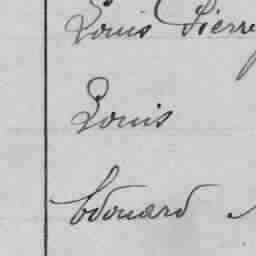 Louis Pierre
Louis
Edouard